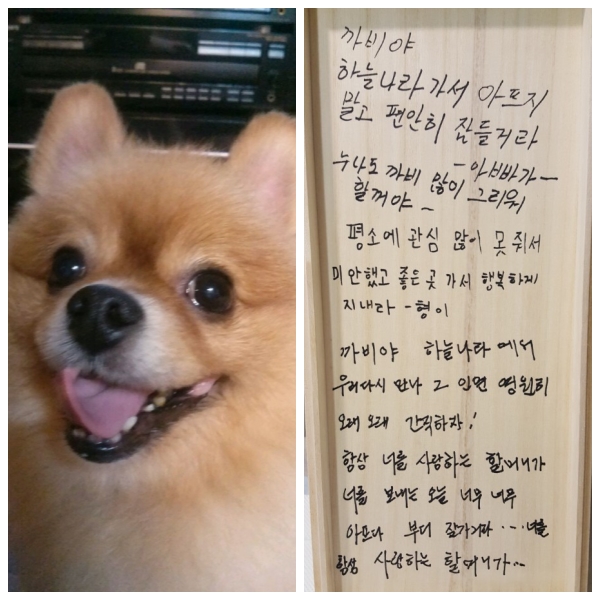 까비야
하늘나라 가서 아프지
말고 편안히 잠들거라
- 아빠가 -
누나도 까비 많이 그리워
할꺼야~
평소에 관심 많이 못 줘서
미안했고 좋은 곳 가서 행복하게
지내라 - 형이
까비야 하늘나라에서
우리다시 만나 그 인연 영원히
오래 오래 간직하자!
항상 너를 사랑하는 할머니가
너를 보내는 오늘 너무 너무
아프다 부디 잘가거라 ... 너를
항상 사랑하는 할머니가...